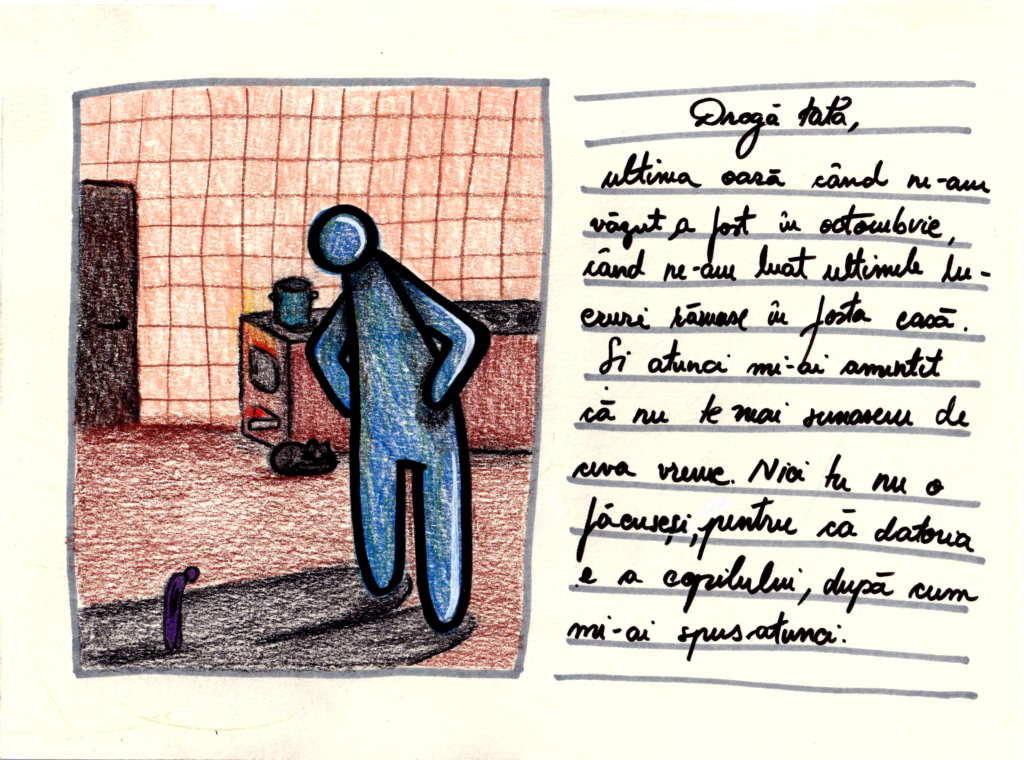 Dragă tată,
ultima oară când ne-am
văzut a fost în octombrie,
când ne-am luat ultimele lu-
cruri rămase în fosta casă.
Și atunci mi-ai amintit
că nu te mai sunasem de
ceva vreme. Nici tu nu o
făcuseși, pentru că datoria
e a copilului, după cum
mi-ai spus atunci.